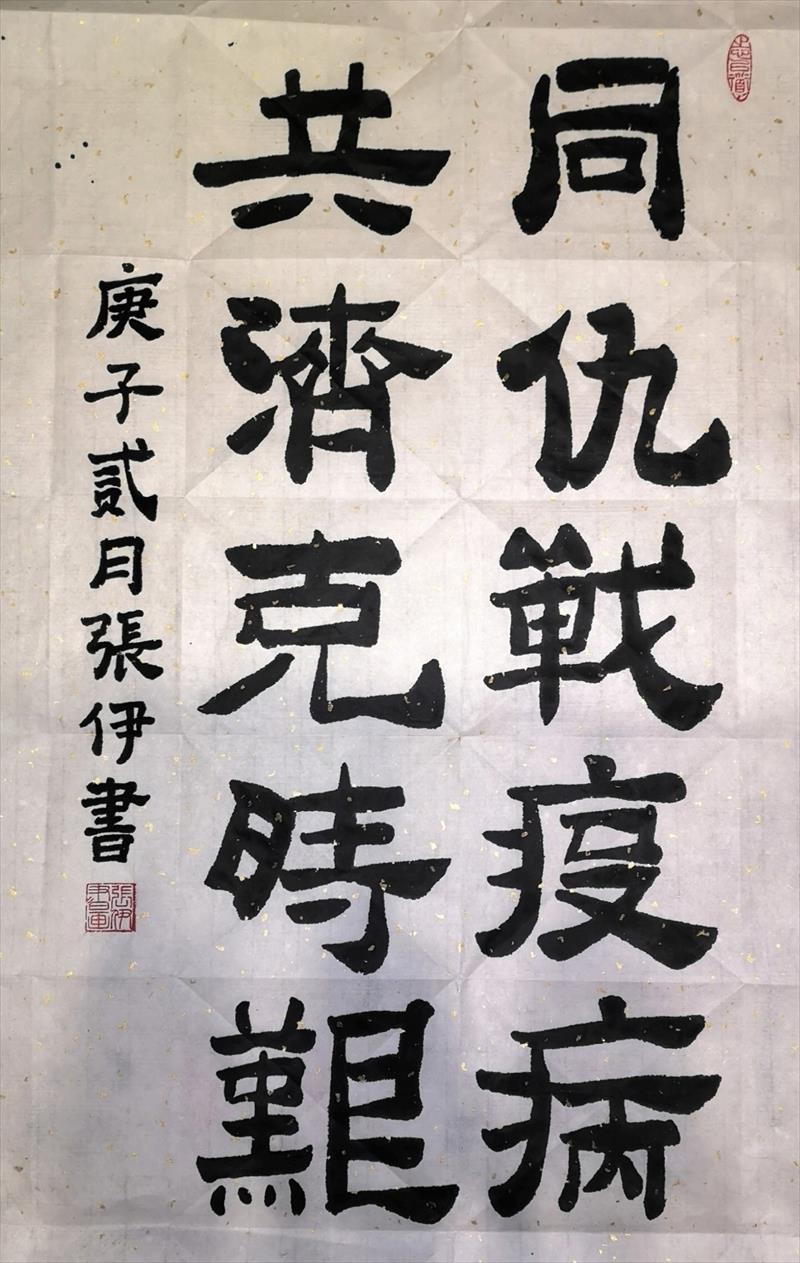 同仇戰疫病
共濟克時艱
庚子貳月張伊書